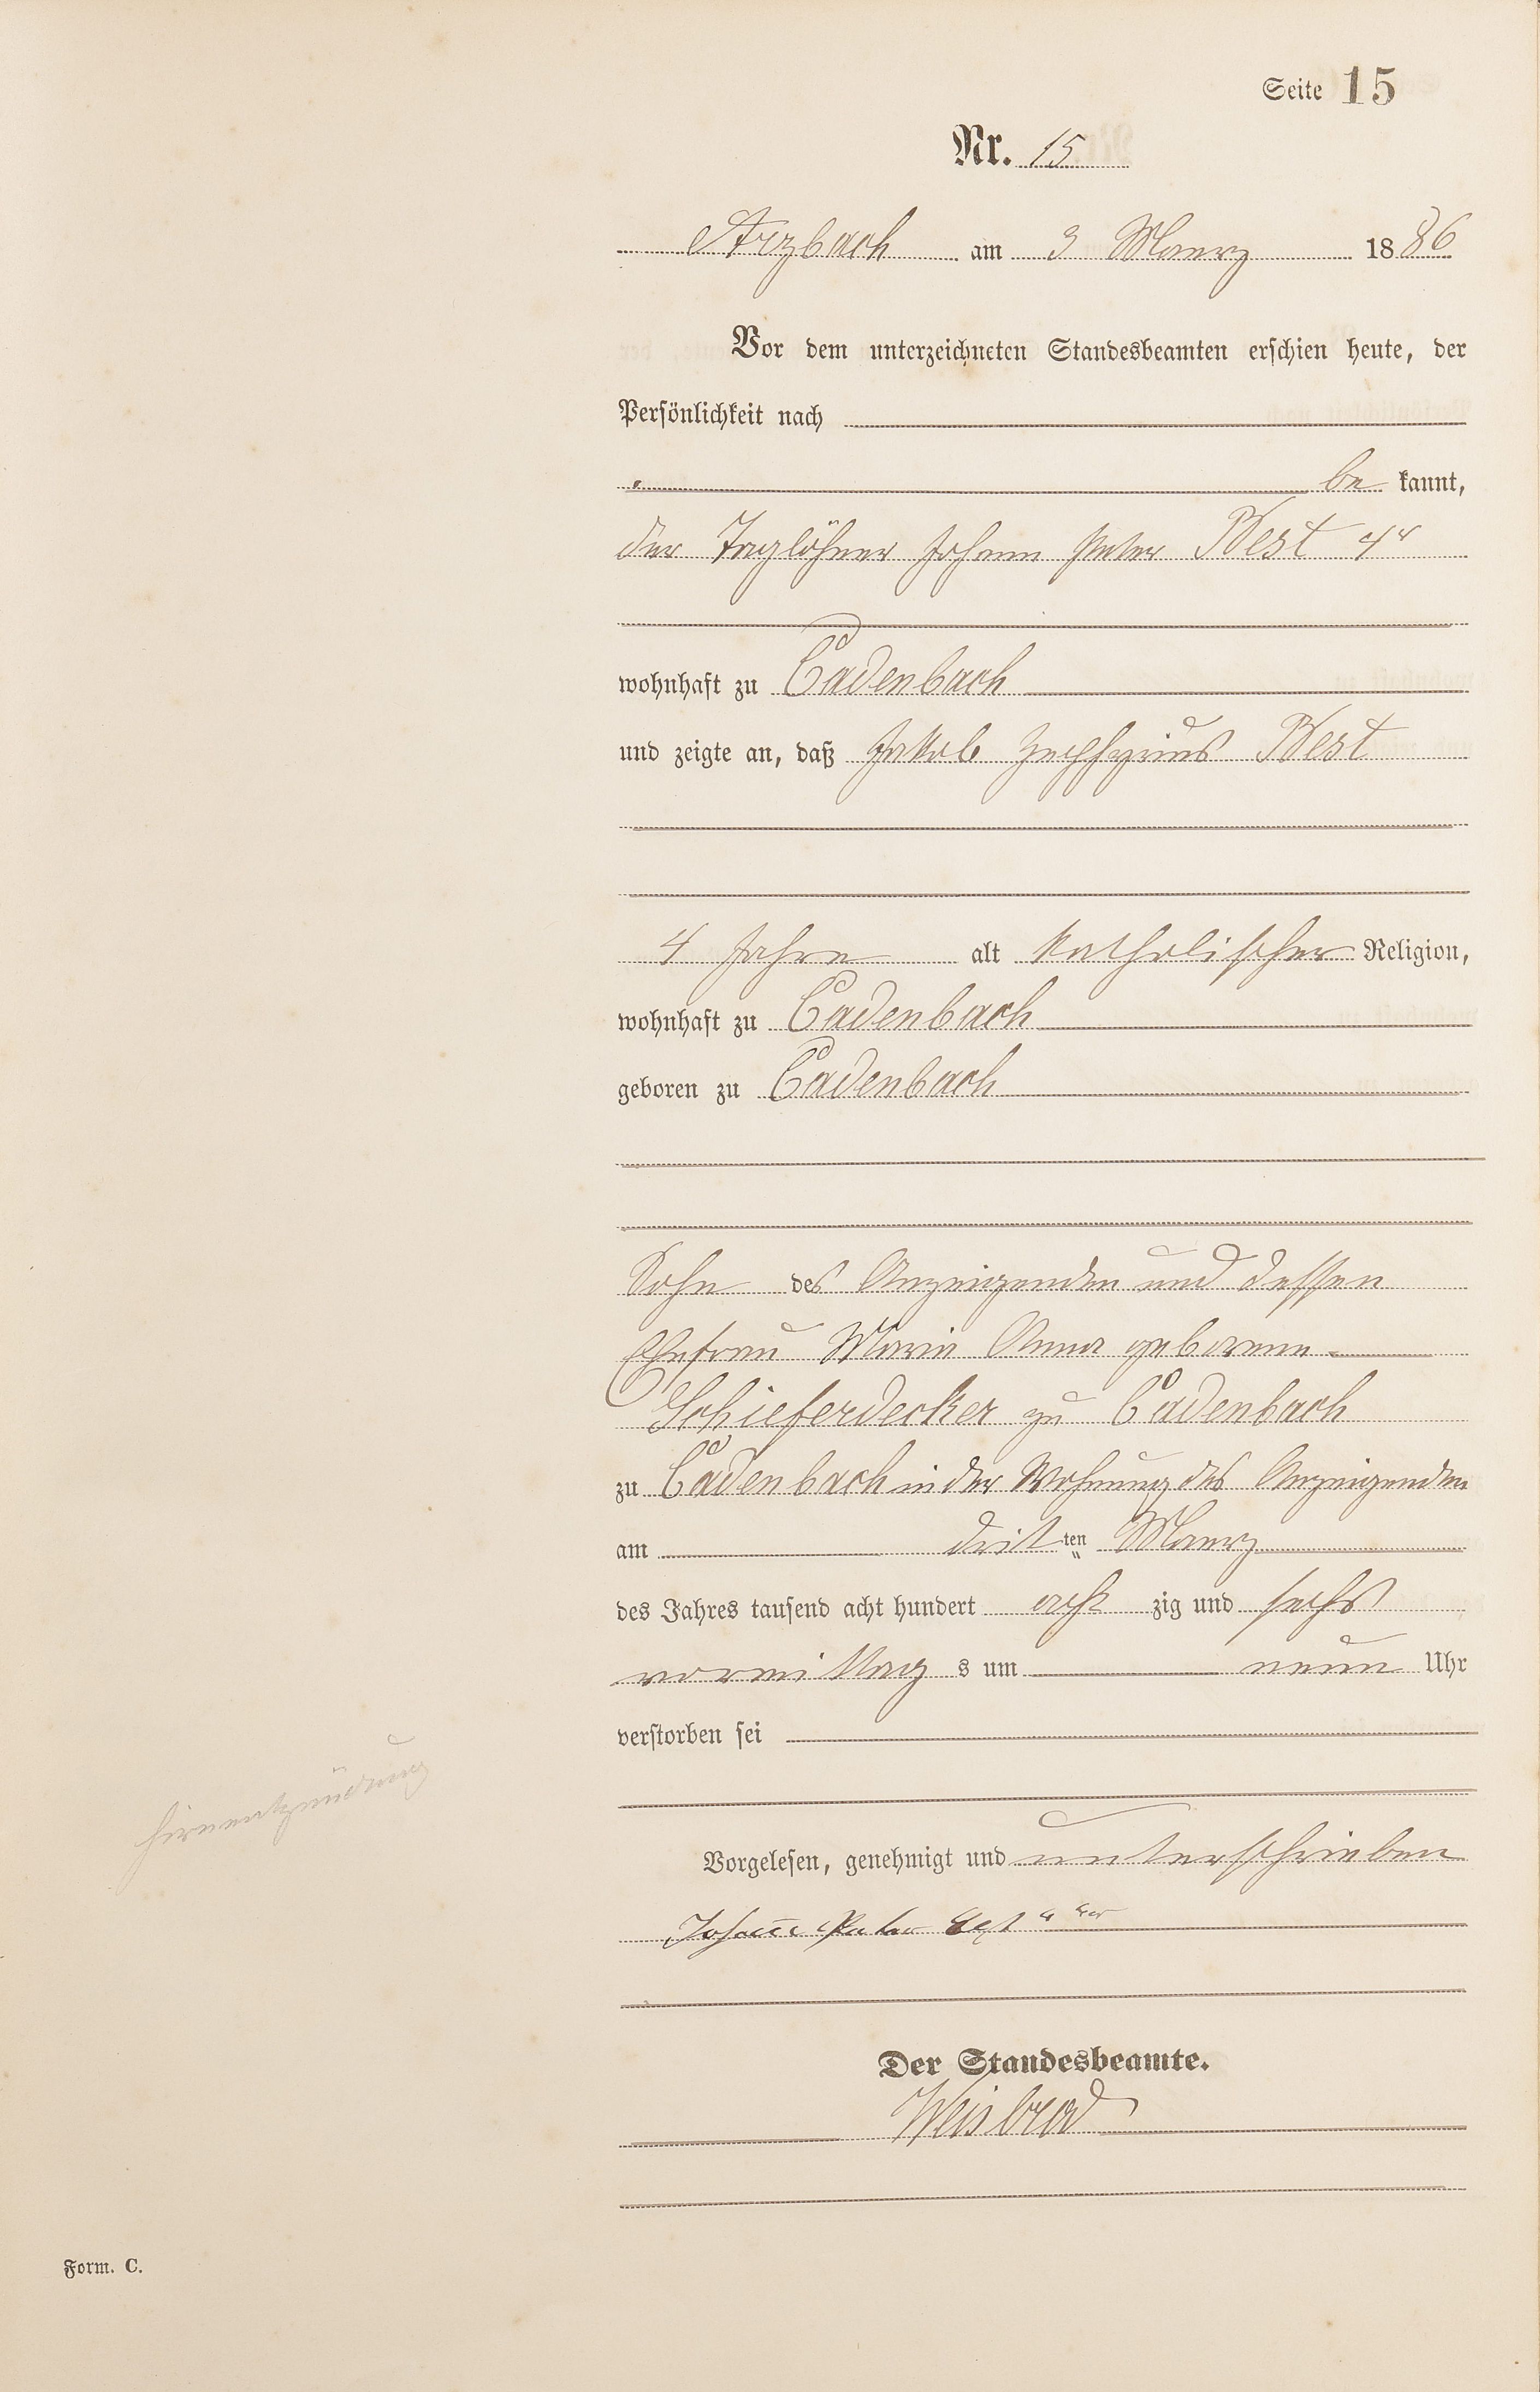 Seite 15
Nr. 15
Arzbach am 3 Maerz 1886
Vor dem unterzeichneten Standesbeamten erschien heute, der
Persönlichkeit nach
be kannt,
der Taglöhner Johann Peter Best 4r
wohnhaft zu Cadenbach
und zeigte an, daß Jakob Zephyrius Best
4 Jahre alt katholischer Religion,
wohnhaft zu Cadenbach
geboren zu Cadenbach
Sohn des Anzeigenden und dessen
Ehefrau Maria Anna geborene
Schieferdecker zu Cadenbach
zu Cadenbach in der Wohnung des Anzeigenden
am dritten Maerz
des Jahres tausend acht hundert acht zig und sechs
vormittag s um neun Uhr
verstorben sei
Hirnentzündung
Vorgelesen, genehmigt und unterschrieben
Johann Peter Best 4
Der Standesbeamte.
Weisbrod
Form. C.